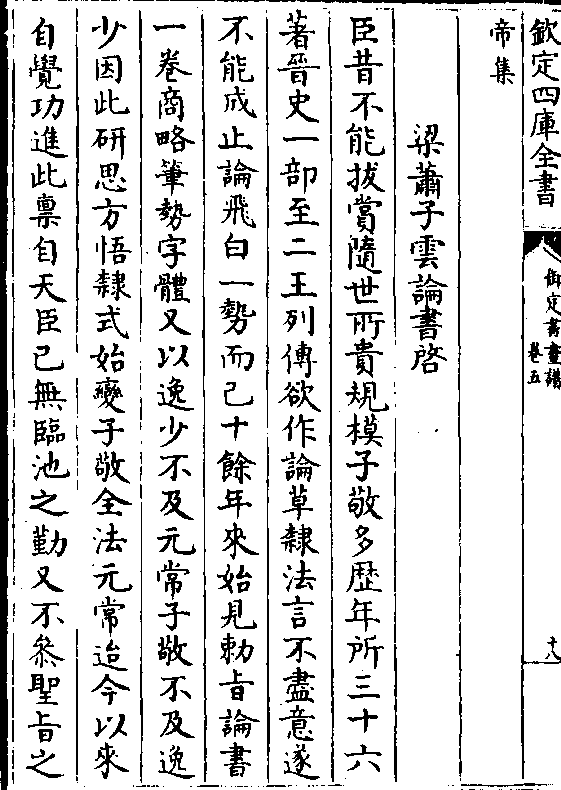 欽定四庫全書
御定書畫譜
卷五
十八
帝集
梁蕭子雲論書啓
臣昔不能拔賞隨世所貴規模子敬多歴年所三十六
著晉史一部至二王列傳欲作論草隸法言不盡意遂
不能成止論飛白一勢而已十餘年來始見勅旨論書
一卷商略筆勢字體又以逸少不及元常子敬不及逸
少因此研思方悟隸式始變子敬全法元常迨今以來
自覺功進此禀自天臣已無臨池之勤又不叅聖旨之